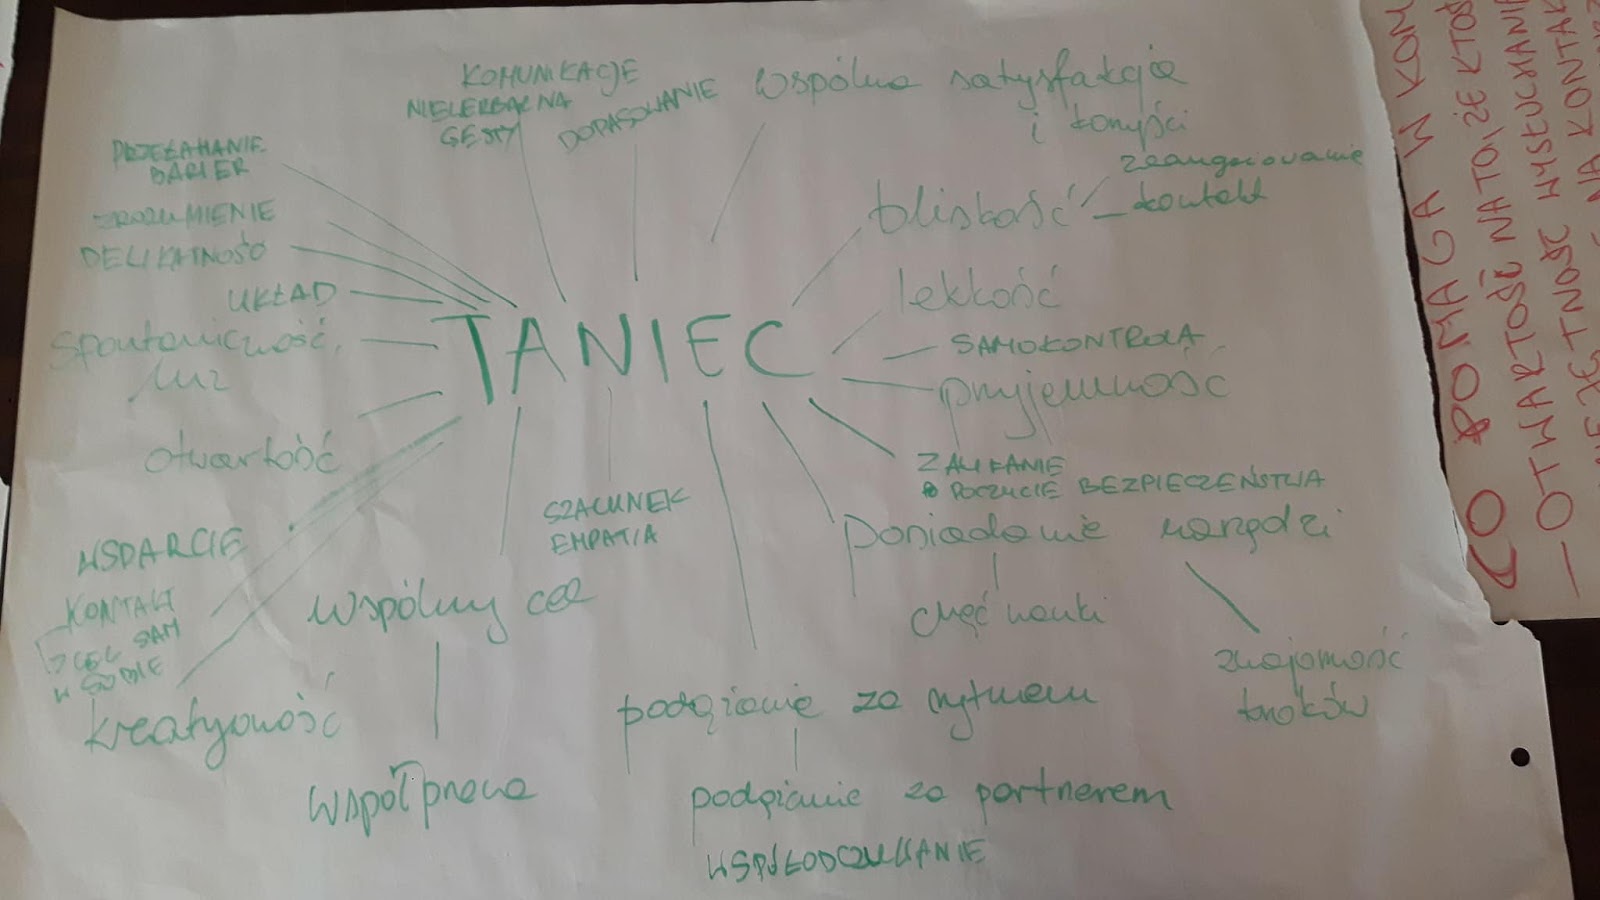 KOMUNIKACJE
NIEWERBALNA
GESTY
DOPASOWANIE
wspólna satysfakcja
i korzyści
PRZEŁAMANIE
BARIER
ZROZUMIENIE
DELIKATNOŚĆ
UKŁAD
spontaniczność,
luz
otwartość
WSPARCIE
KONTAKT
CEL SAM
W SOBIE
kreatywność
TANIEC
bliskość
zaangażowanie
kontakt
lekkość
SAMOKONTROLA
przyjemność
ZAUFANIE
POCZUCIE BEZPIECZEŃSTWA
posiadanie narzędzi
chęć nauki
znajomość
kroków
SZACUNEK
EMPATIA
wspólny cel
współpraca
podążanie za rytmem
podążanie za partnerem
WSPÓŁODCZUWANIE
CO POMAGA W KOM
– OTWARTOŚĆ NA TO, ŻE KTOŚ
WYSŁUCHANIA
NA KONTAK